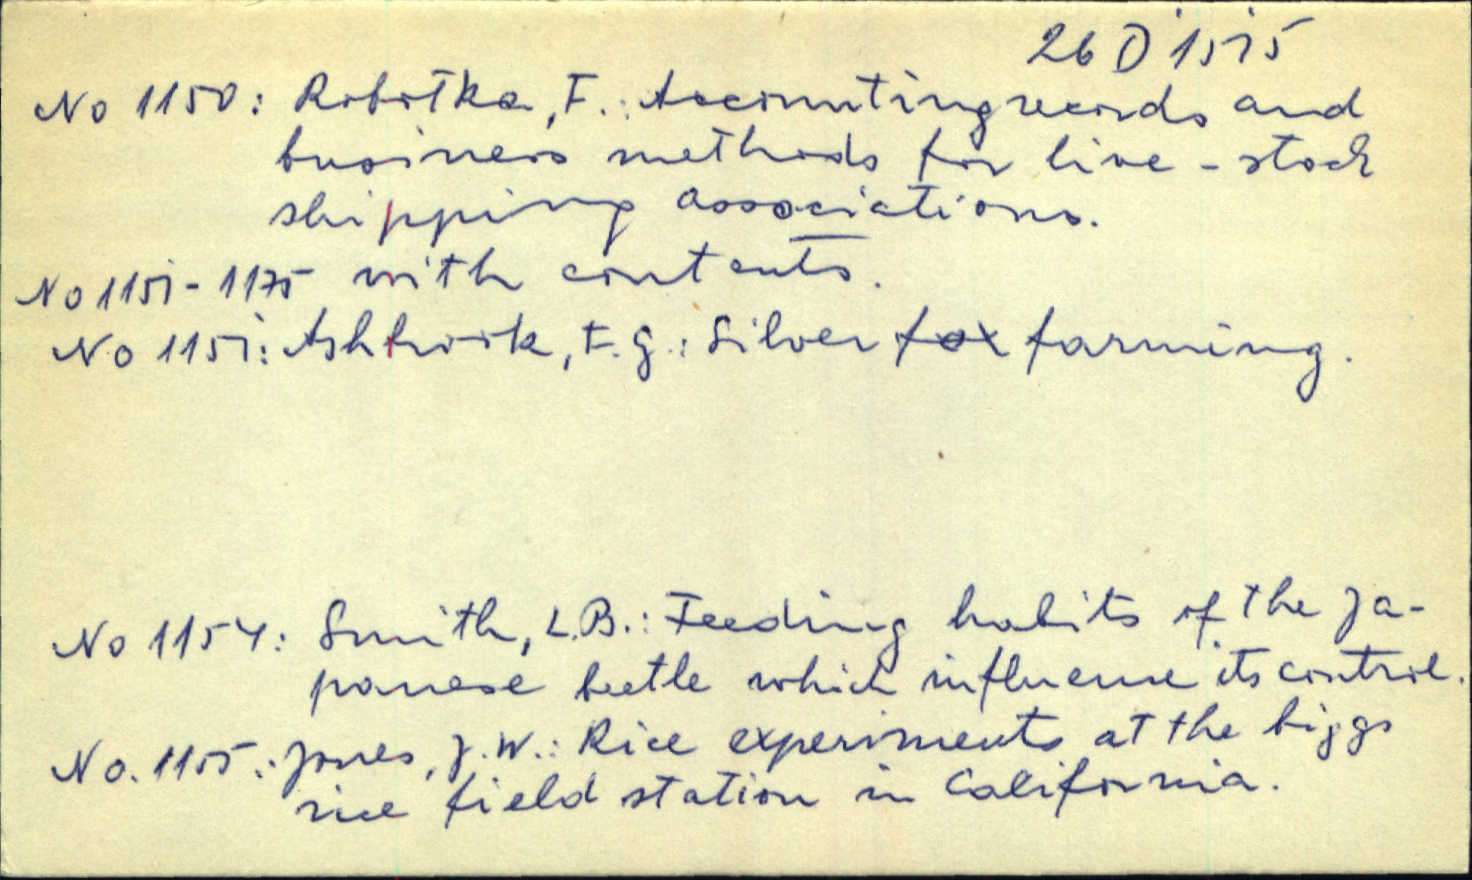 26 D 1575
No 1150: Robotka, F.: Accounting records and
business methods for live-stock
shipping associations.
No 1151-1175 with contents.
No 1151: Ashbrook, F.G.: Silver fox farming.
No 1154: Smith, L.B.: Feeding habits of the Ja-
panese beetle which influence its control.
No. 1155: Jones, J.W.: Rice experiments at the biggs
rice field station in California.